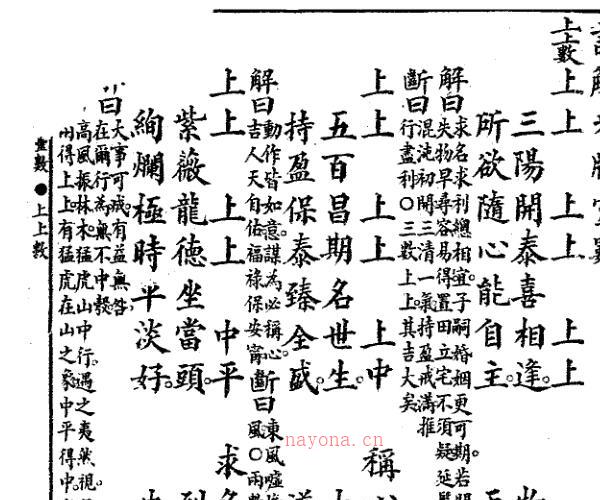 上上數 上上 上上 上上
三陽開泰喜相逢。
所欲隨心能自主。
解曰 求名求利總相宜。子嗣婚姻更可期。若問
失物早尋容易得。置田立宅不須疑延
斷曰 混沌初開三清一氣持盈戒滿推
行盡利○三數上上其吉大矣
上上 上上 上中 稱
五百昌期名世生。
持盈保泰臻全盛。
解曰 動作皆如意。謀為必稱心。
吉人天自佑福祿保安寧 斷曰 東風噓
風○兩數
上上 上上 中平 求
紫薇龍德坐當頭。
絢爛極時平淡好。
曰 大事可成。有益無咎。
在爾行為。無不中彀
高風振林木。猛虎山中行。遇之夷然視
得上上有猛虎在山之象中平得中
靈數●上上數
nayona.cn